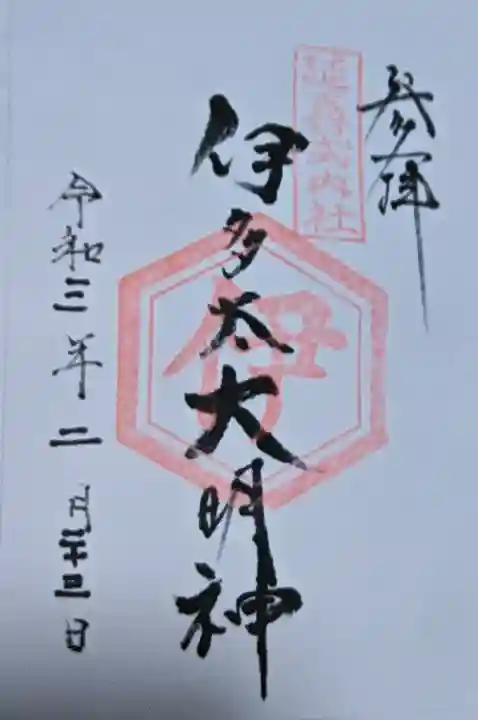 参拝
延喜式内社
伊多太大明神
伊
令和三年二月廿三日